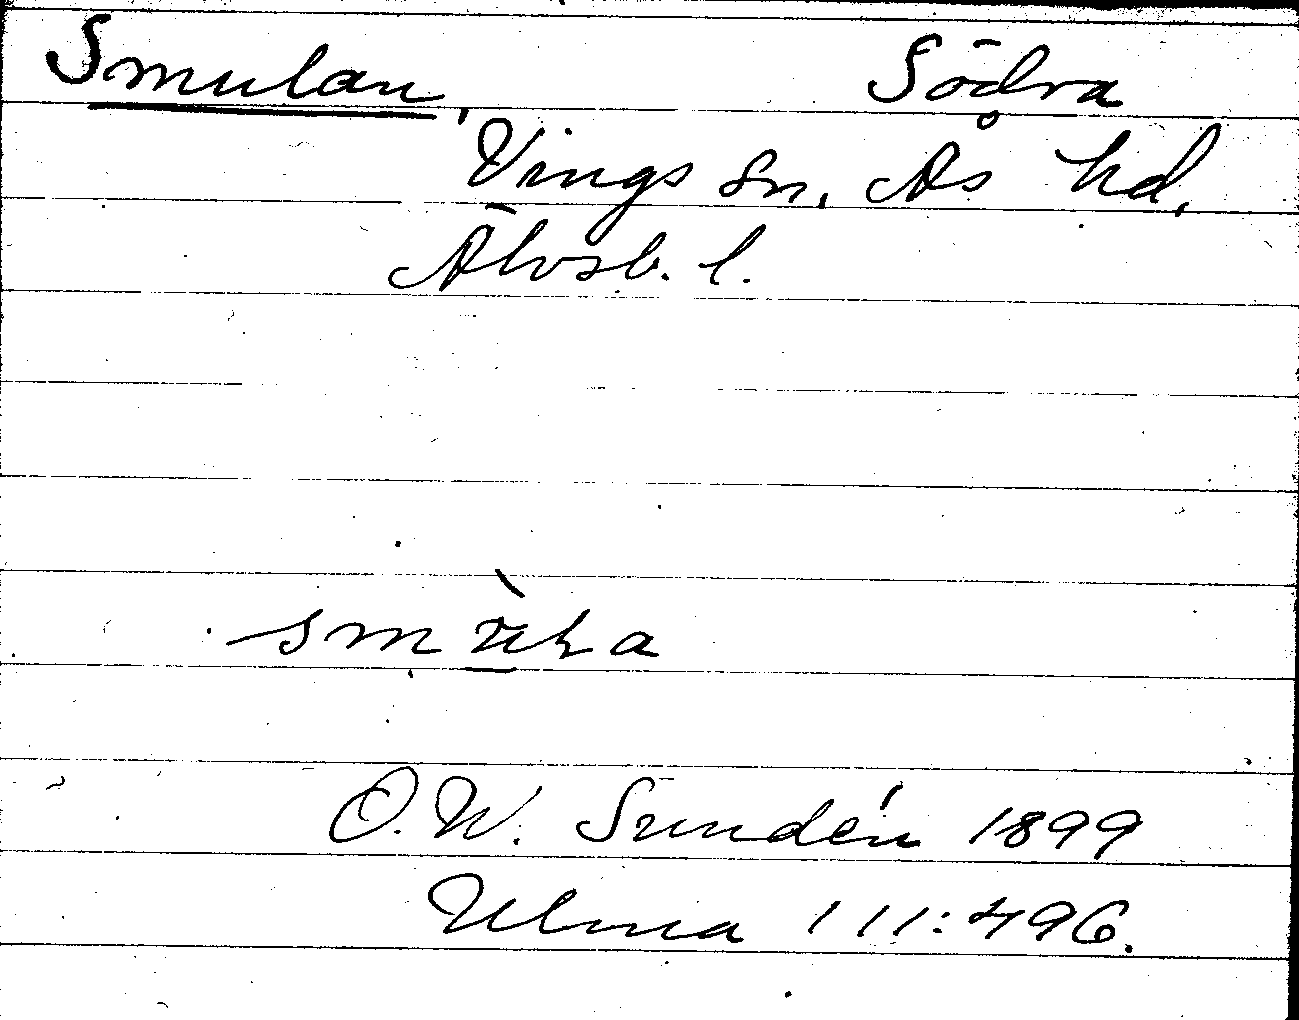 Smulan, Södra
Vings sn, Ås hd,
Älvsb. l.
O. W. Sundén 1899
Ulma 111:496.